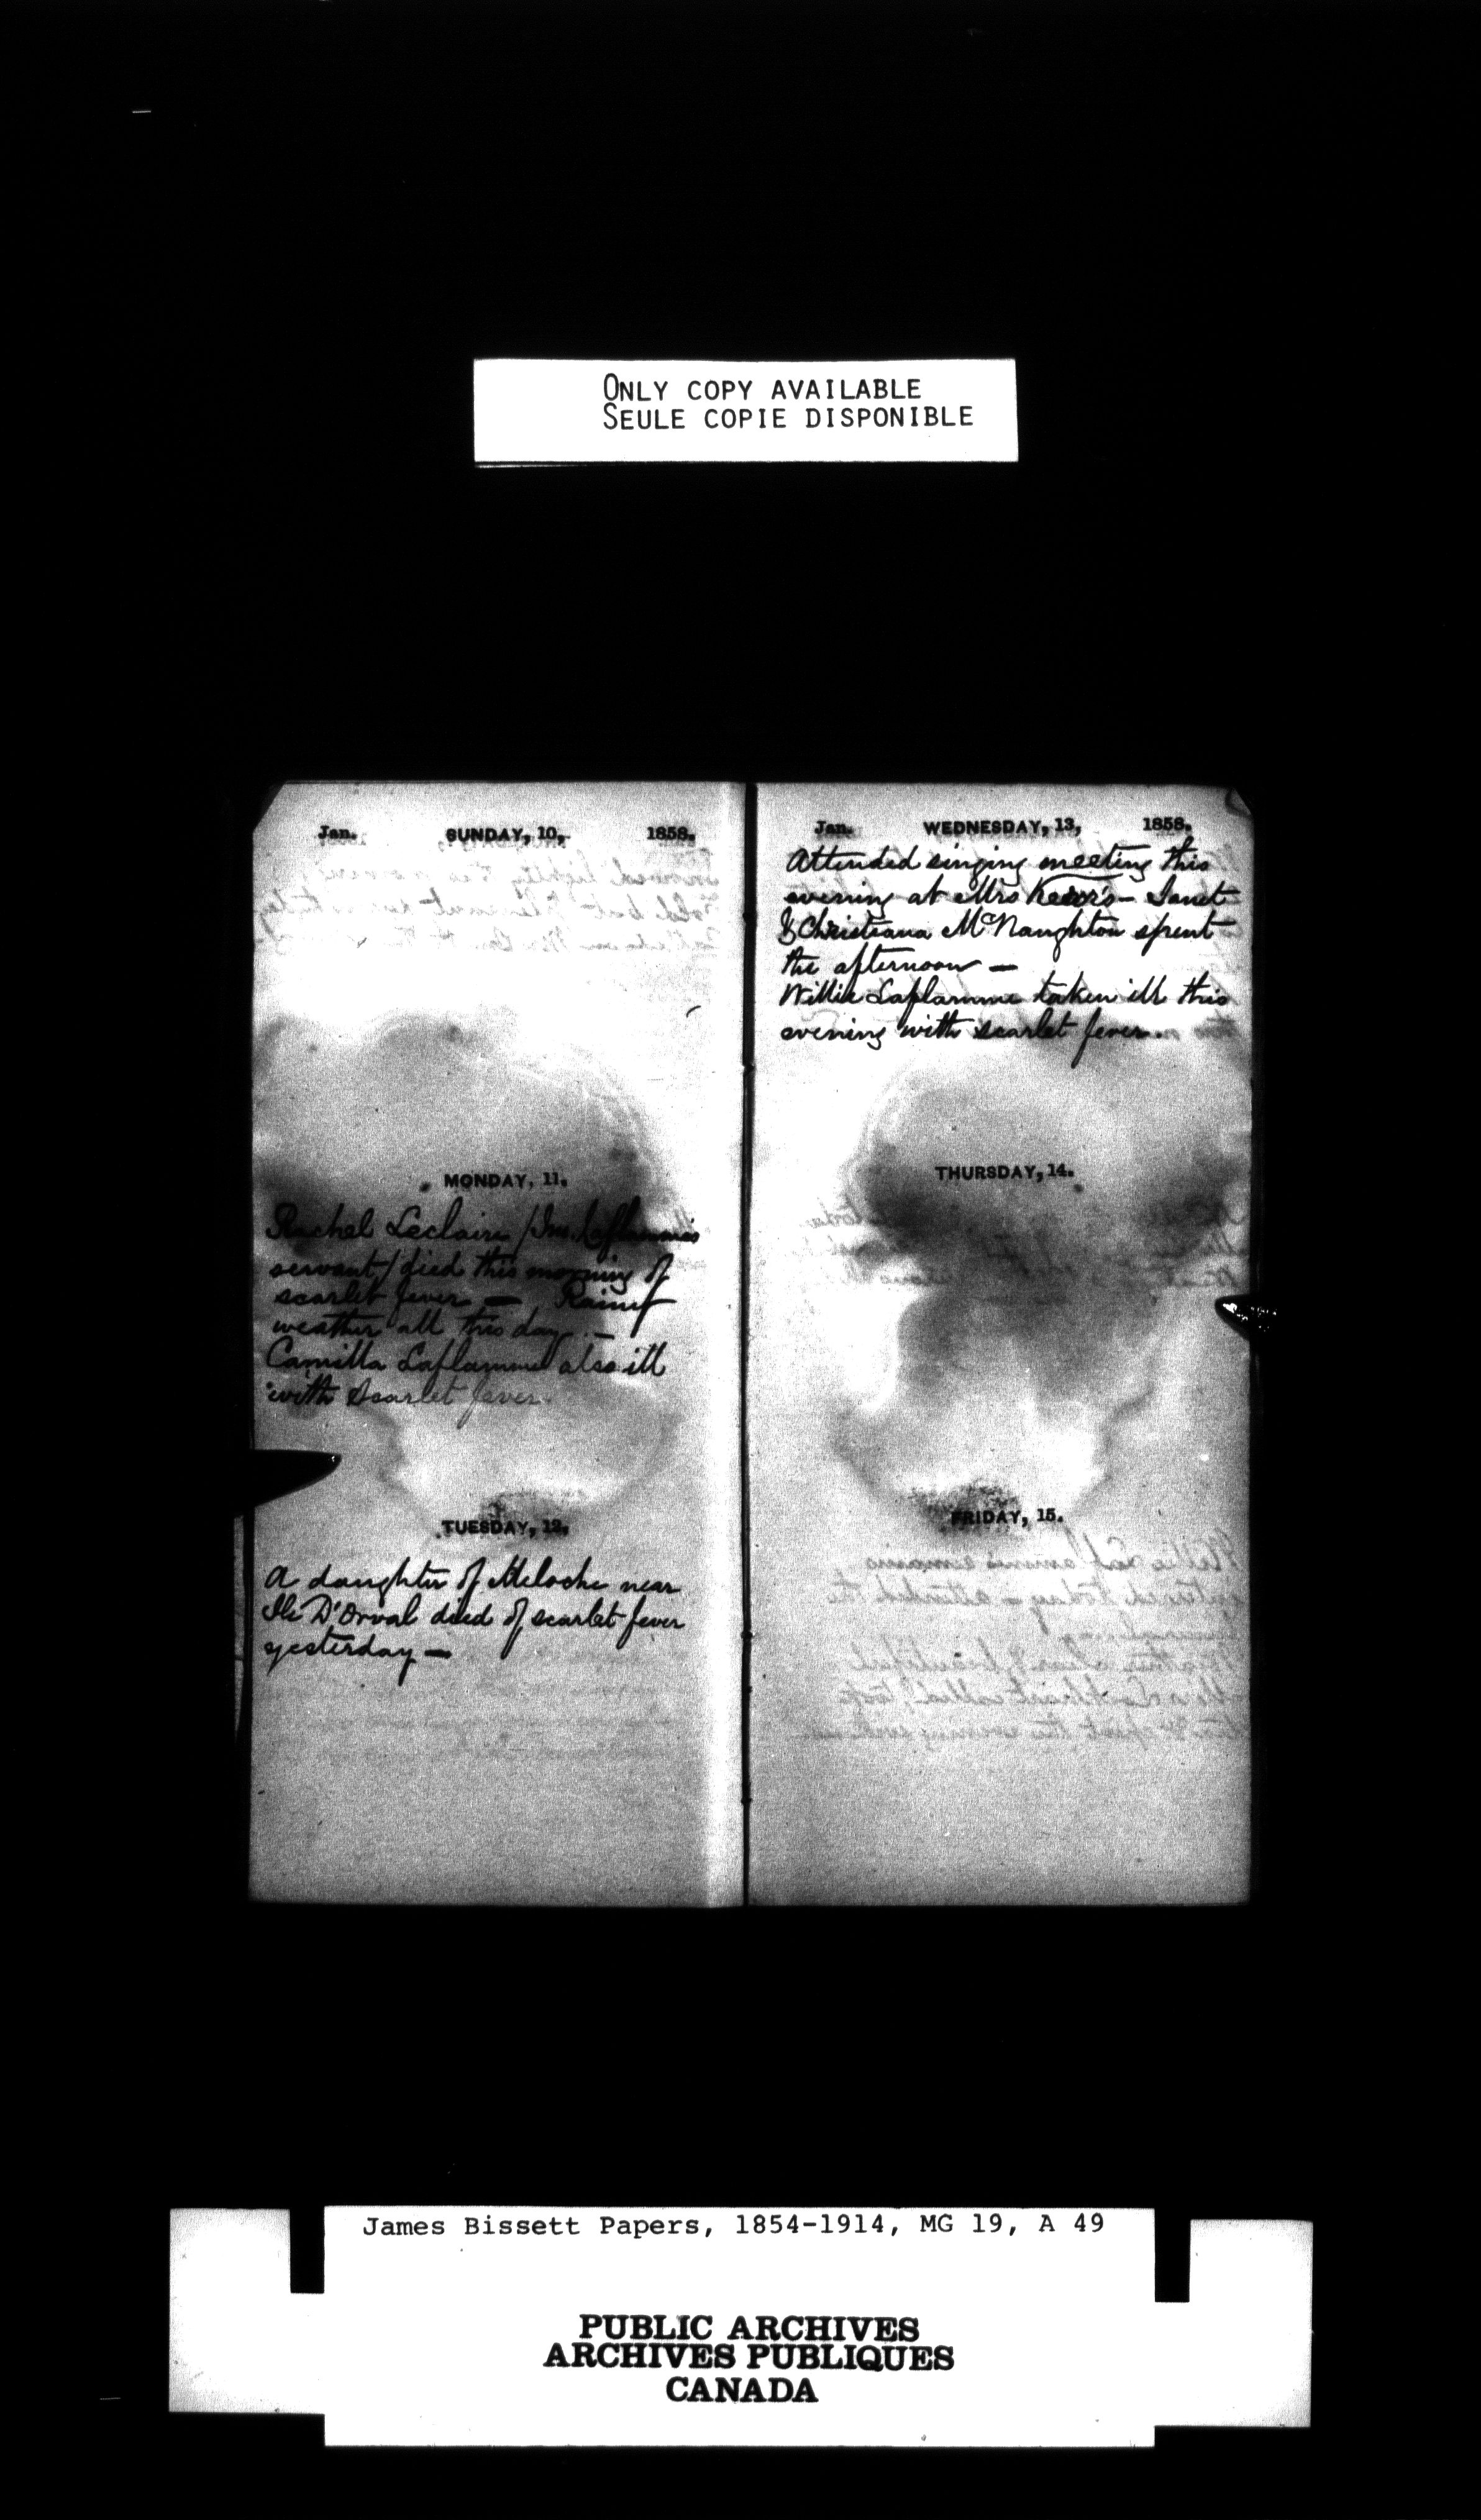 ONLY COPY AVAILABLE
SEULE COPIE DISPONIBLE
Jan. SUNDAY, 10, 1858.
MONDAY, 11.
Rachel Leclaire / Laflamme's
servant / died this morning of
scarlet fever — Rainy
weather all this day. —
Camilla Laflamme also ill
with scarlet fever.
TUESDAY, 12.
A daughter of Meloche near
Ile D'Orval died of scarlet fever
yesterday —
Jan. WEDNESDAY, 13, 1858.
Attended singing meeting this
evening at Mrs Kerr's — Janet
& Christiana McNaughton spent
the afternoon —
Willie Laflamme taken ill this
evening with scarlet fever.
THURSDAY, 14.
FRIDAY, 15.
James Bissett Papers, 1854-1914, MG 19, A 49
PUBLIC ARCHIVES
ARCHIVES PUBLIQUES
CANADA